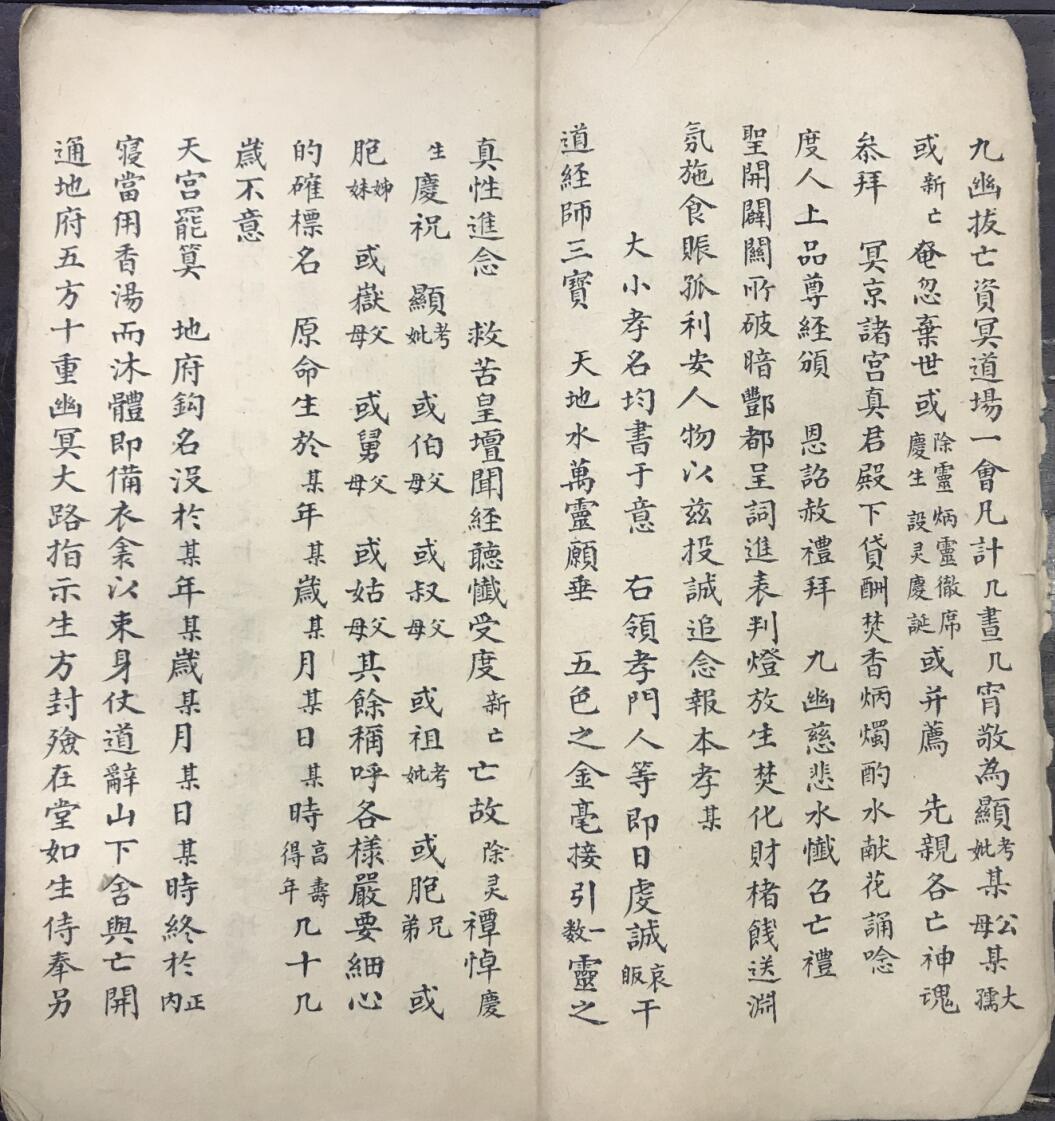 九幽拔亡資冥道場一會凡計几晝几宵敬為顯考妣某公母某大孺
或新亡奄忽棄世或除靈炳靈徹席慶生設灵慶誕或并薦 先親各亡神魂
叅拜 冥京諸宮真君殿下貸酬焚香炳燭酌水献花誦唸
度人上品尊経頒 恩詔赦禮拜 九幽慈悲水懺召亡禮
聖開闢關所破暗酆都呈詞進表判燈放生焚化財楮餞送淵
氛施食賑孤利安人物以兹投誠追念報本孝某
大小孝名均書于意 右領孝門人等即日虔誠哀皈干
道経師三寳 天地水萬靈願垂 五色之金毫接引一数靈之
真性進念 救苦皇壇聞経聴懺受度新亡亡故除灵禫悼慶
生慶祝 顯考妣 或伯父母 或叔父母 或祖考妣 或胞兄弟 或
胞姊妹 或嶽父母 或舅父母 或姑父母其餘稱呼各樣嚴要細心
的確標名 原命生於某年某歲某月某日某時高壽得年几十几
歲不意
天宮罷筭 地府鈎名没於某年某歲某月某日某時終於正内
寢當用香湯而沐體即備衣衾以束身仗道辭山下舍與亡開
通地府五方十重幽冥大路指示生方封殮在堂如生侍奉另